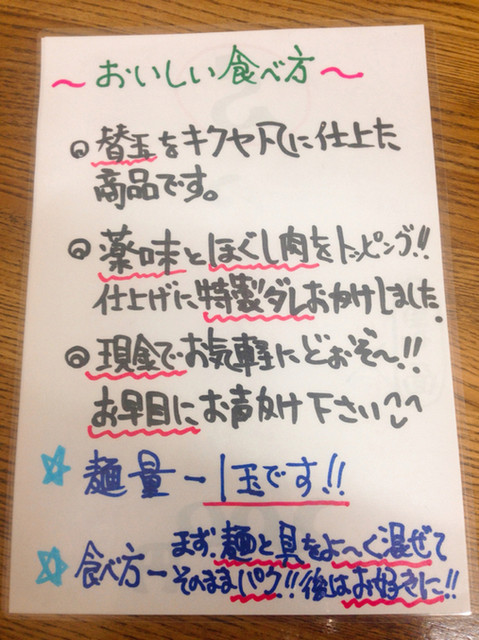 ～おいしい食べ方～
◎替玉をキクヤ風に仕上た
商品です。
◎薬味とほぐし肉をトッピング!!
仕上げに特製ダレおかけしました。
◎現金でお気軽にどおぞ〜!!
お早目にお声かけ下さい^^
☆麺量ー1玉です!!
☆食べ方ーまず、麺と具をよ〜く混ぜて
そのままパク!!後はお好きに!!